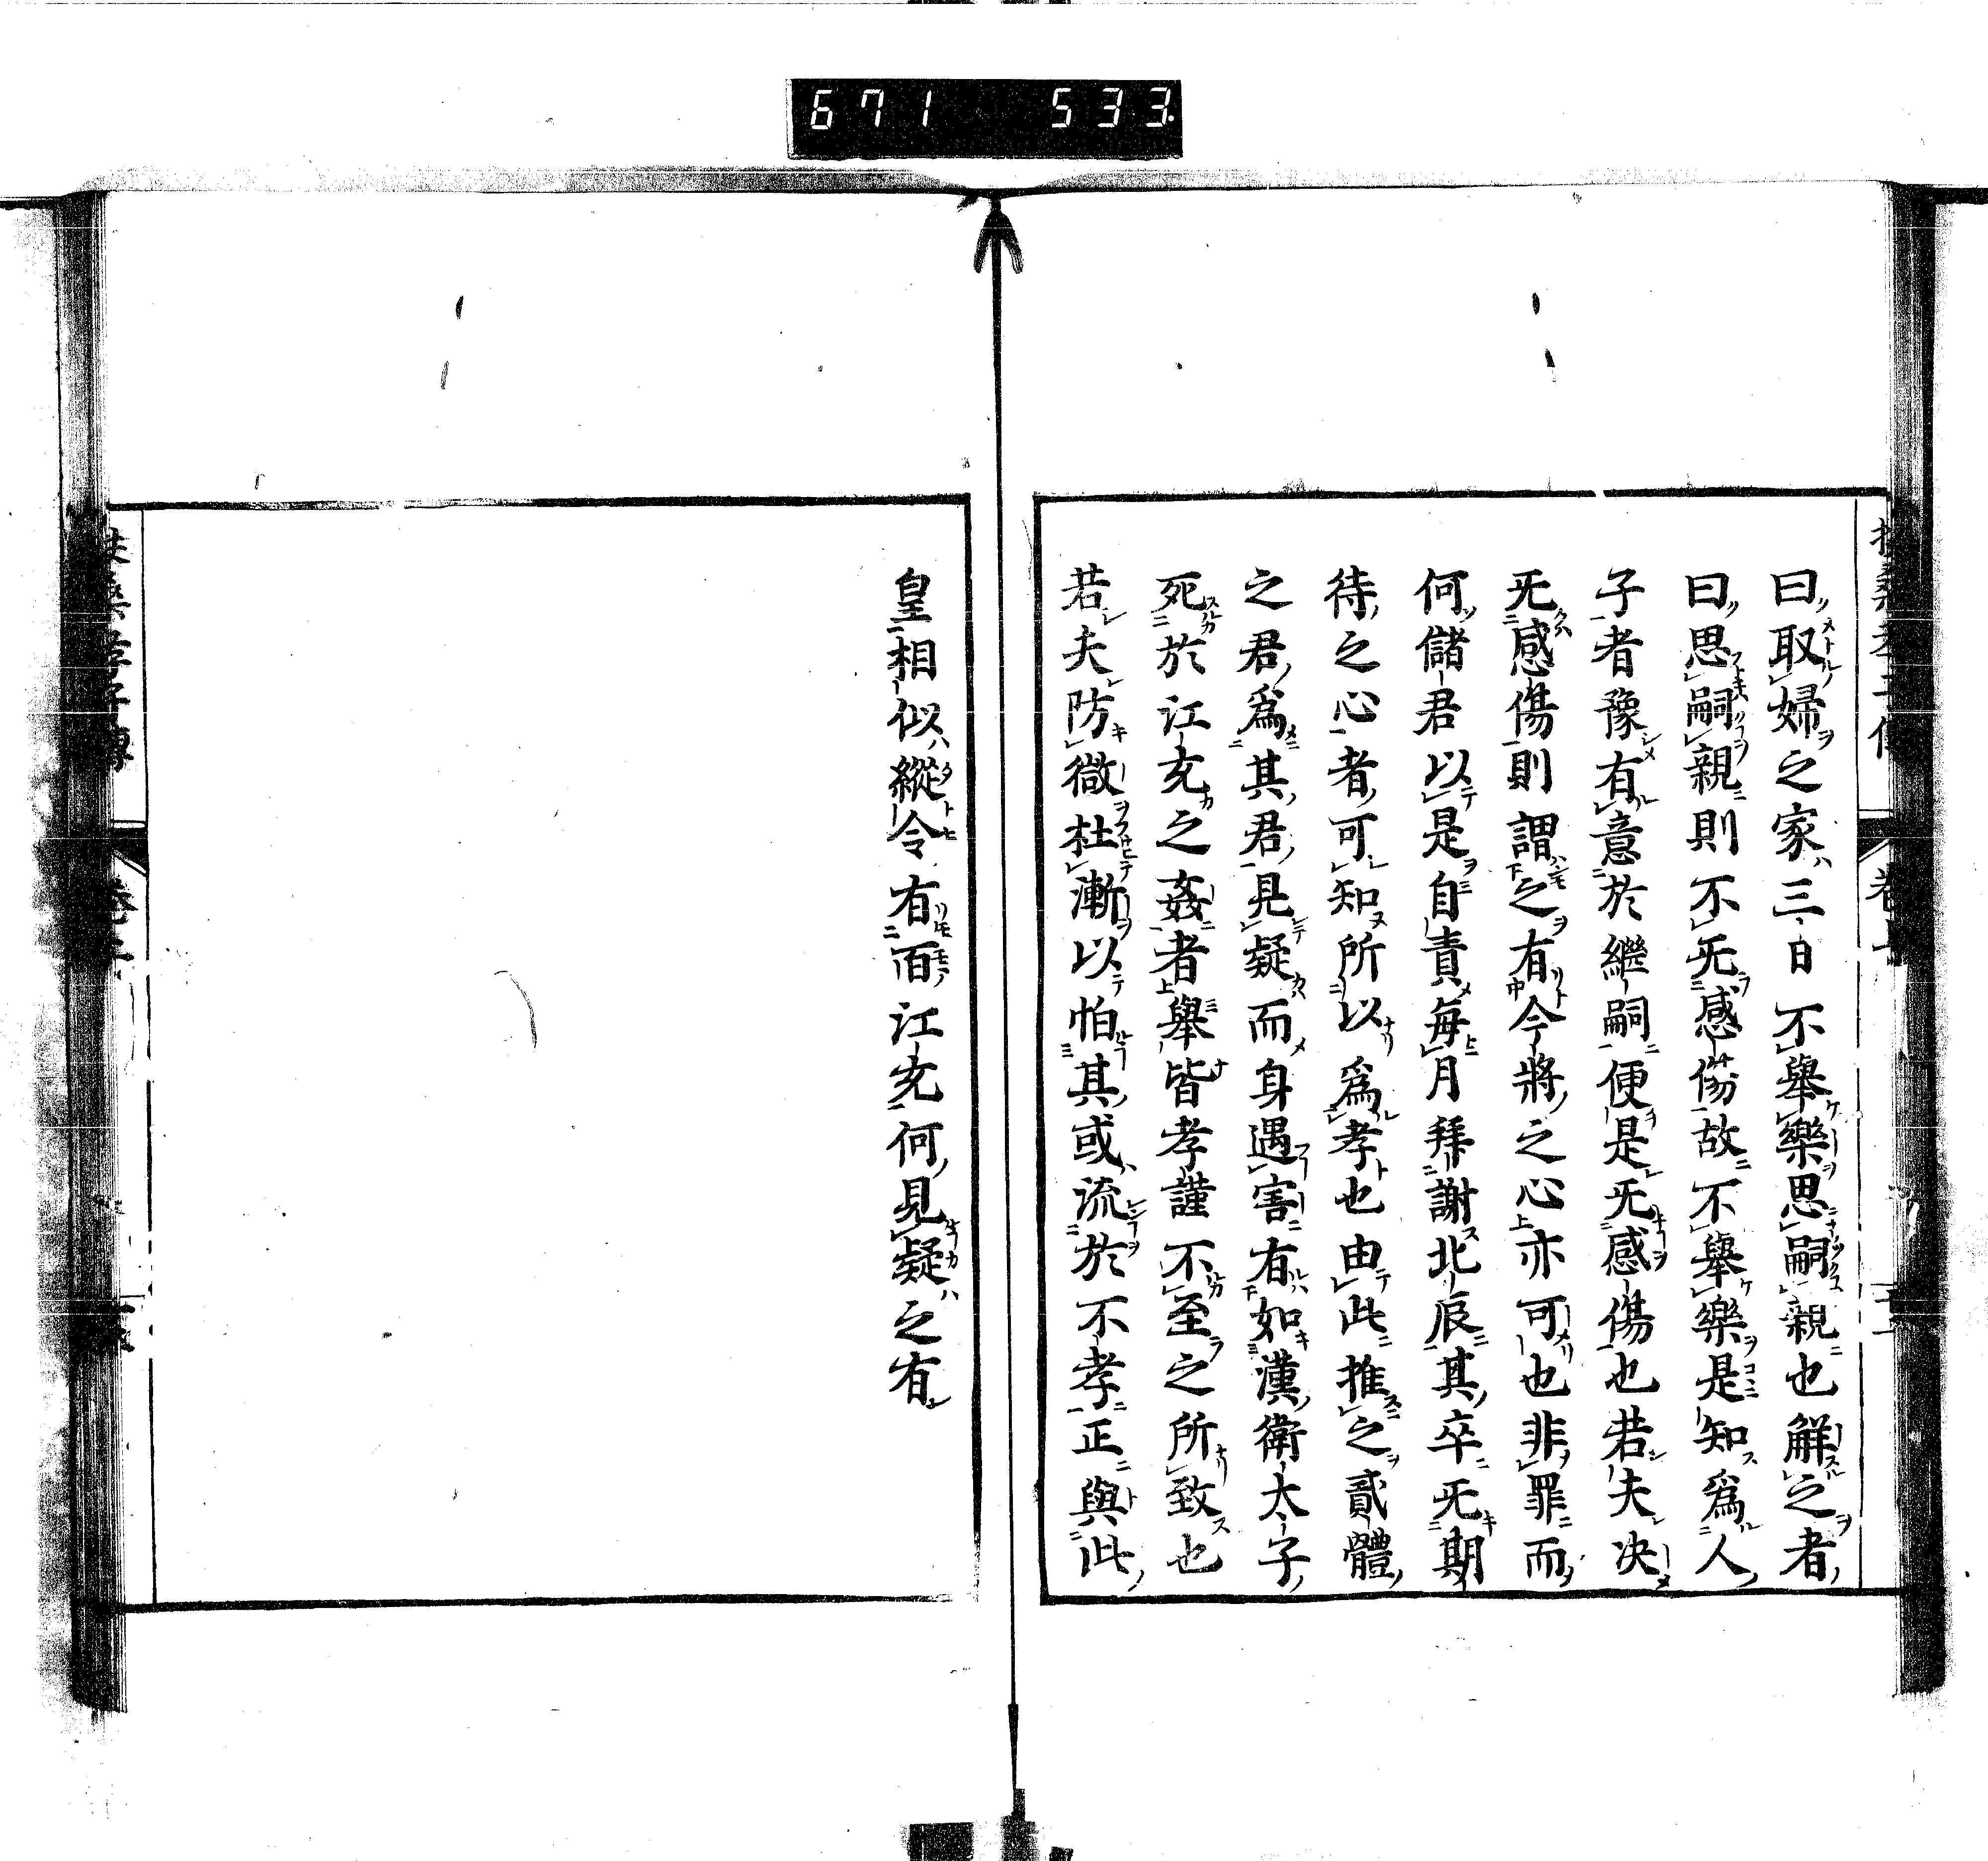 671 533
曰取婦之家三日不舉樂思嗣親也解之者
曰思嗣親則不无感傷故不舉樂是知爲人
子者豫有意於繼嗣便是无感傷也若夫决
无感傷則謂之有今將之心亦可也非罪而
何儲君以是自責每月拜謝北辰其卒无期
待之心者可知所以爲孝也由此推之貳體
之君爲其君見疑而身遇害有如漢衛太子
死於江充之姦者舉皆孝謹不至之所致也
若夫防微杜漸以怕其或流於不孝正與此
皇相似縱令有百江充何見疑之有